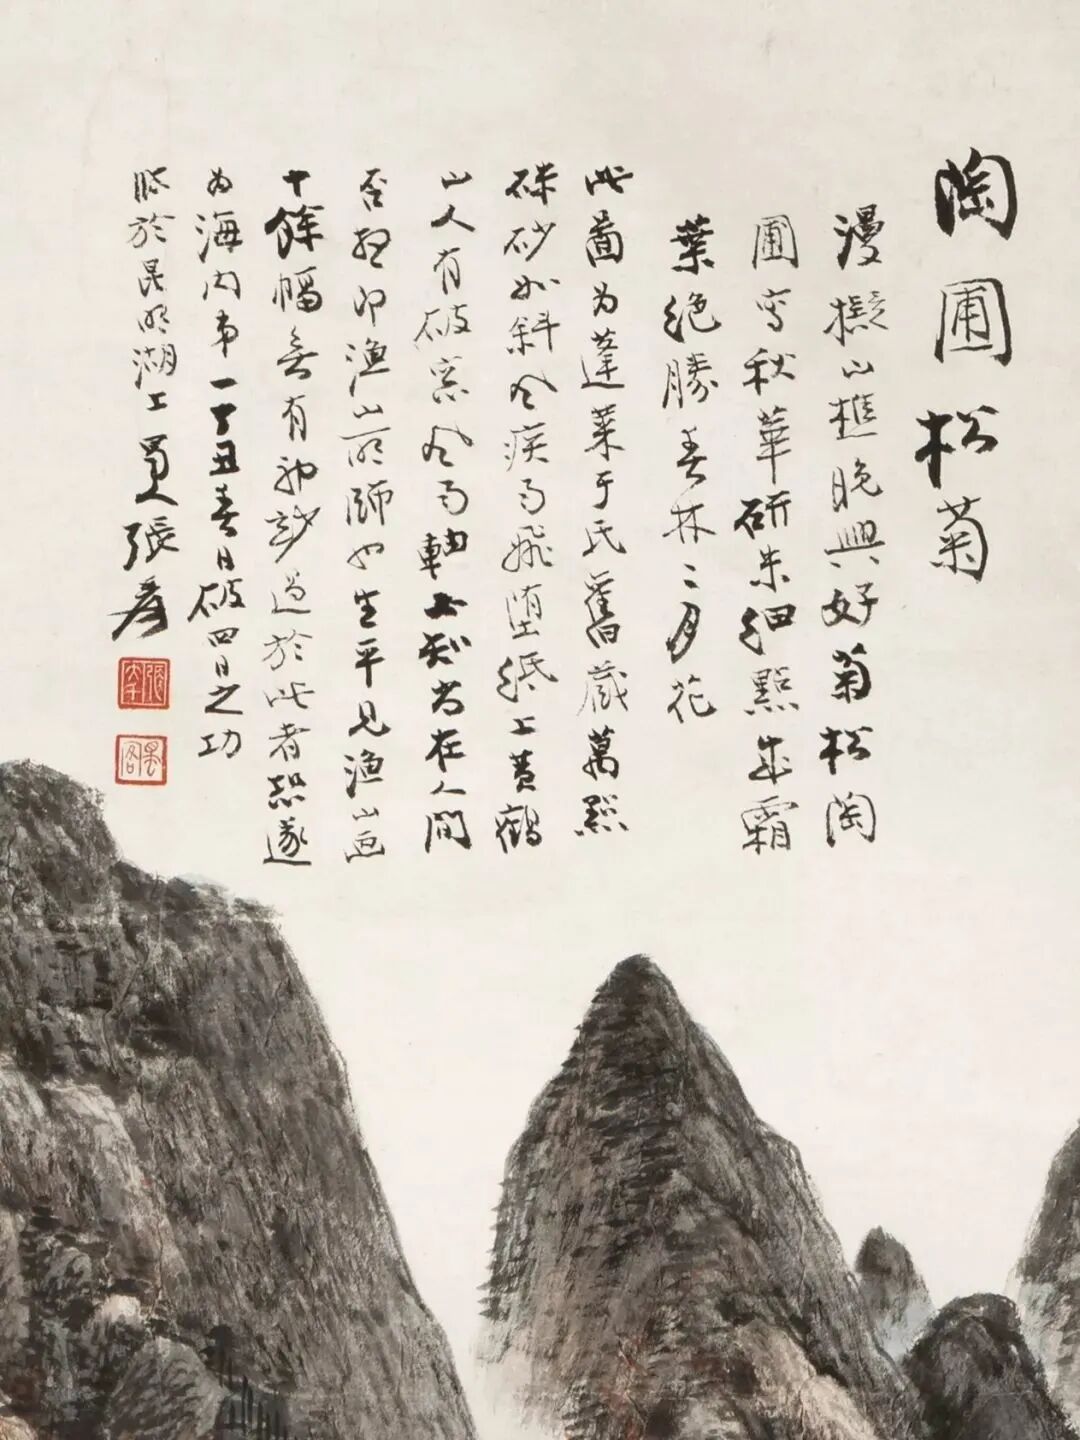 陶圃松菊
漫擬山樵晚興好菊松陶
圃寫秋華研朱細點生霜
葉絕勝春林二月花
此圖为蓬萊于氏舊藏萬點
硃砂如斜風疾雨飛堕紙上黄鶴
山人有破窯風雨軸不知尚在人間
否想即漁山所師也生平見漁山画
十餘幅無有神韵過於此者恐遂
为海内弟一丁丑春日破四日之功
臨於昆明湖上蜀人張爰
張大千